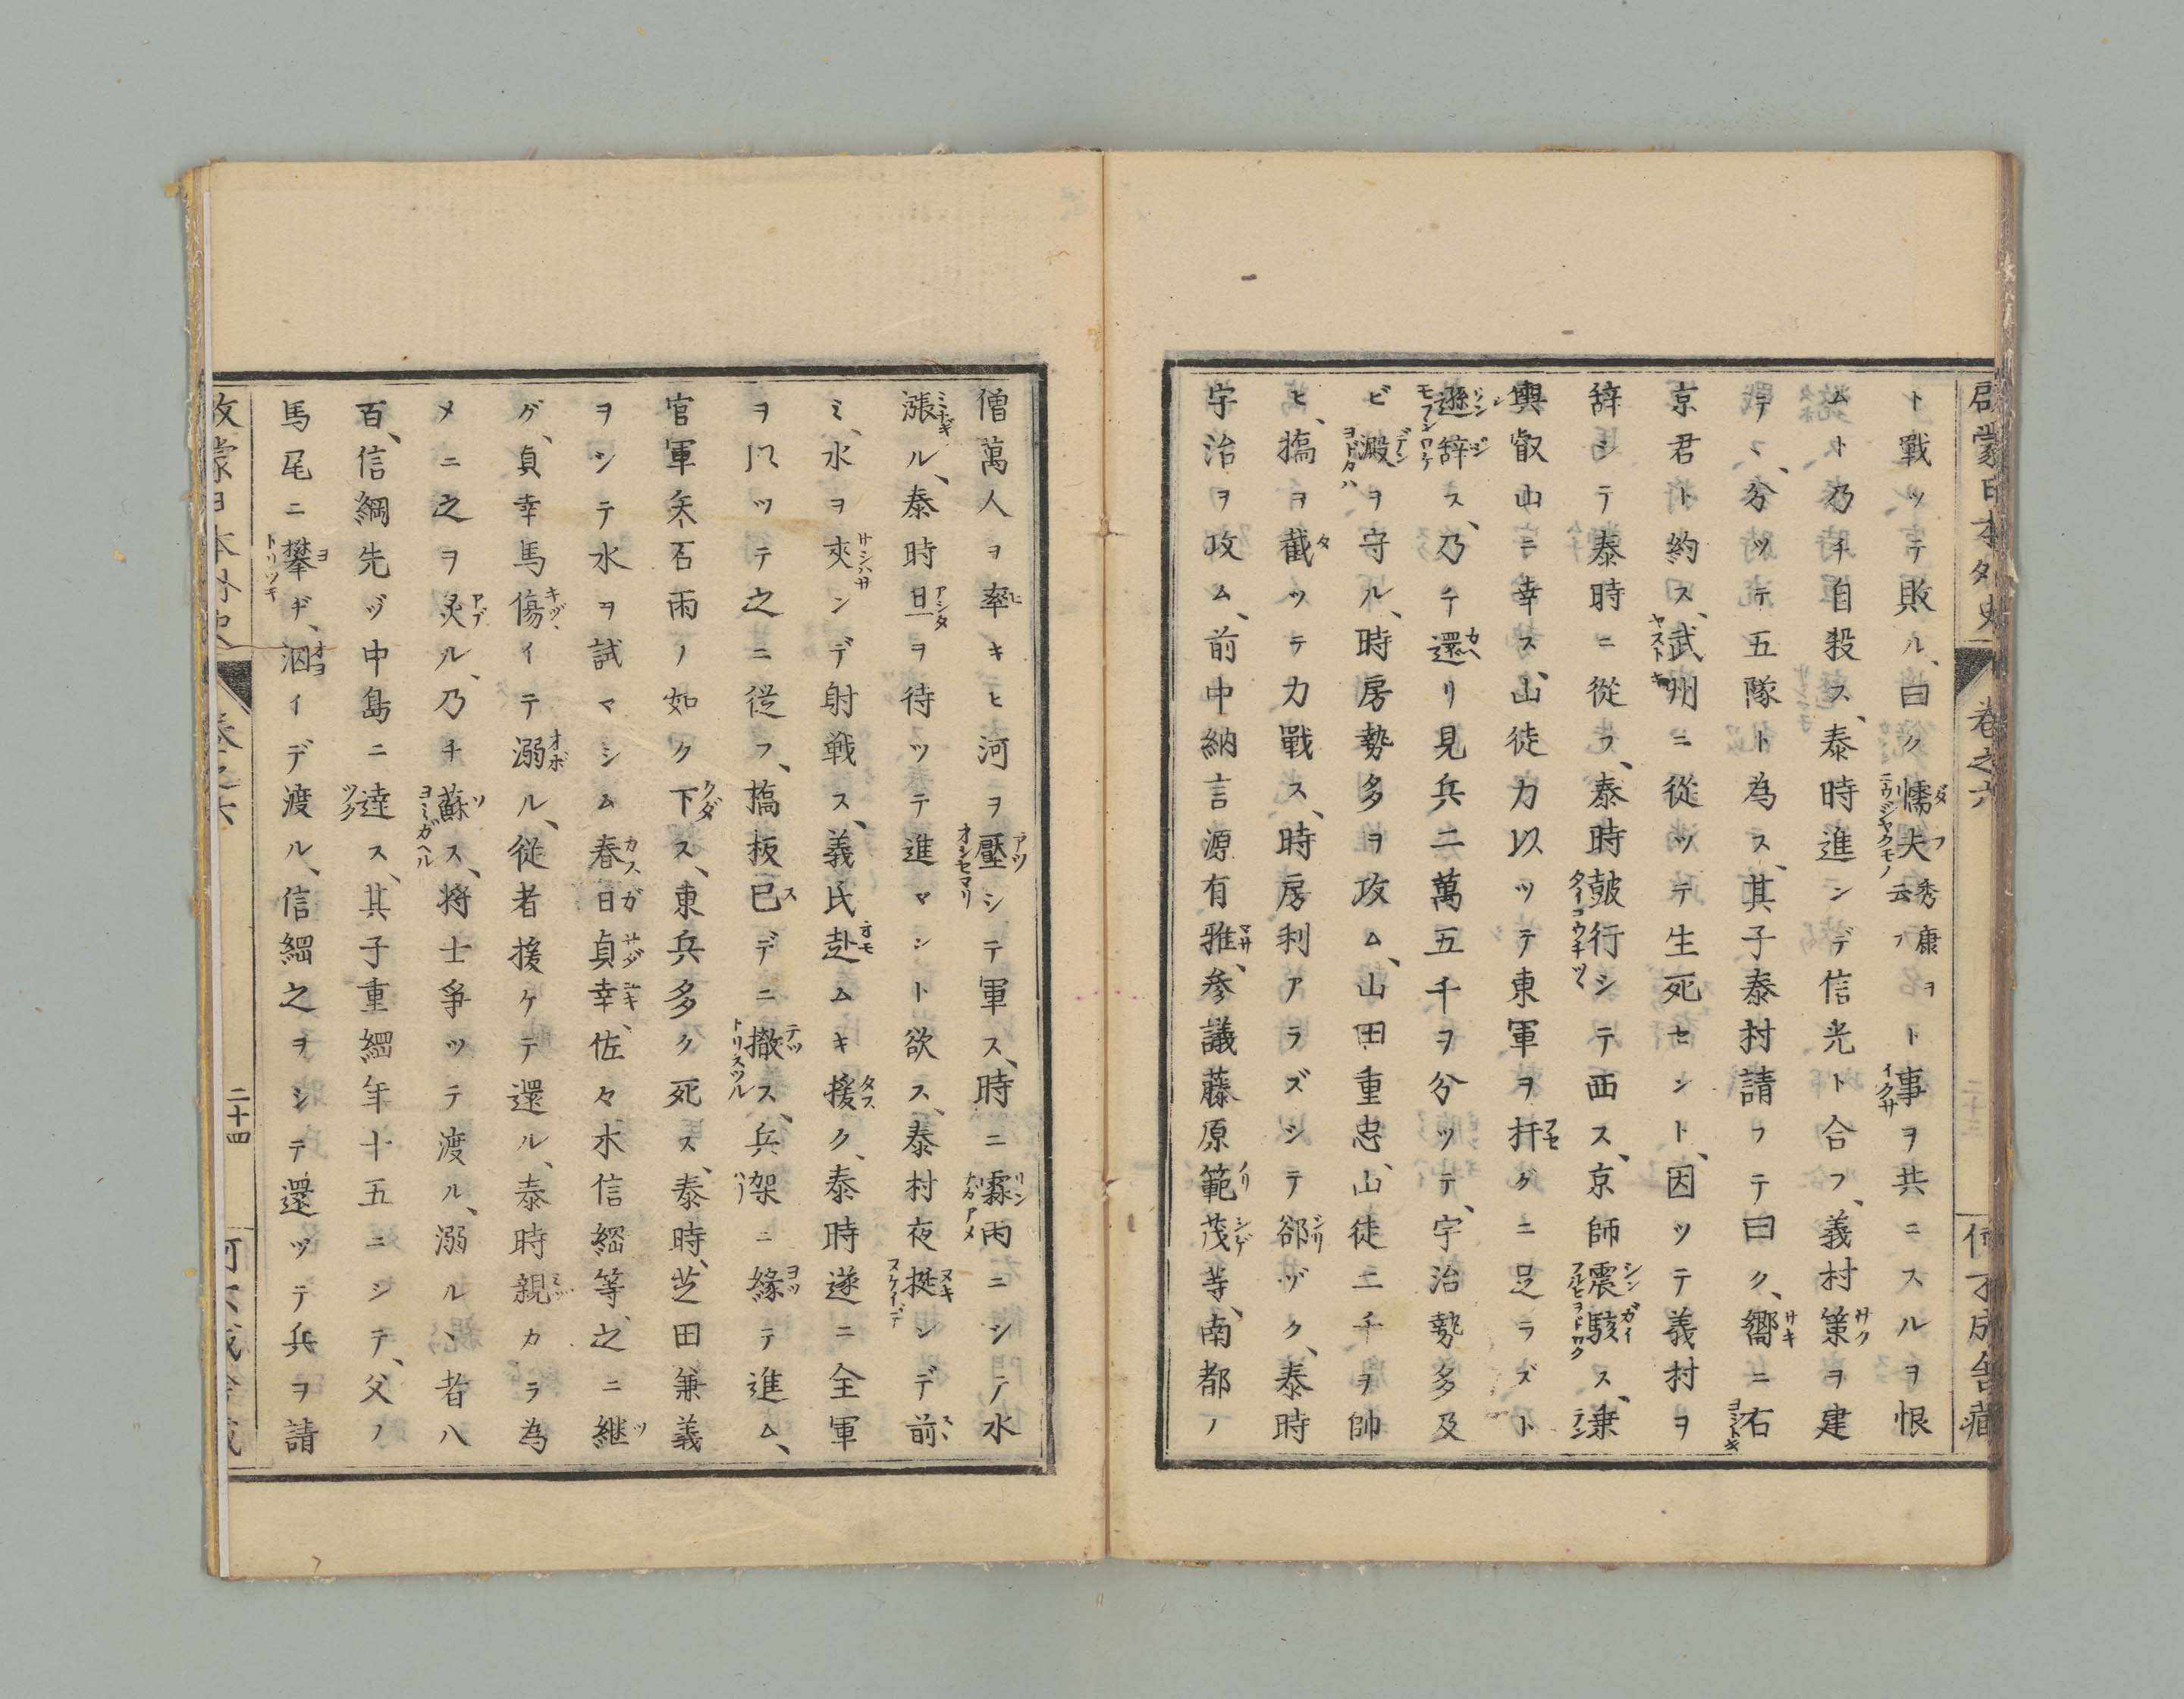 啓蒙日本外史 卷之六
ト戰ツテ敗ル、曰ク懦夫秀康ヲ云フト事ヲ共ニスルヲ恨
ムト乃チ自殺ス、泰時進ンデ信光ト合フ、義村策ヲ建
テヽ、分ツテ五隊ト為ス、其子泰村請フテ曰ク、嚮ニ右
京君ト約ス、武州ニ從ツテ生死セント、因ツテ義村ヲ
辞シテ泰時ニ從フ、泰時鼓行シテ西ス、京師震駭ス、乗
輿叡山ニ幸ス、山徒力以ツテ東軍ヲ扞グニ足ラズト
遜辞ス、乃チ還リ見兵二萬五千ヲ分ツテ、宇治勢多及
ビ澱ヲ守ル、時房勢多ヲ攻ム、山田重忠、山徒二千ヲ帥
ヒ、撟ヲ截ツテ力戰ス、時房利アラズシテ郤ヅク、泰時
宇治ヲ攻ム、前中納言源有雅、参議藤原範茂等、南都ノ
僧萬人ヲ率キヒ河ヲ壓シテ軍ス、時ニ霖雨ニシテ水
漲ル、泰時旦ヲ待ツテ進マント欲ス、泰村夜挺ンデ前
ミ、水ヲ夾ンデ射戦ス、義氏赴ムキ援ク、泰時遂ニ全軍
ヲ以ツテ之ニ従フ、撟板已デニ撤ス、兵架ニ緣テ進ム、
官軍矢石雨ノ如ク下ス、東兵多ク死ス、泰時、芝田兼義
ヲシテ水ヲ試マシム春日貞幸、佐々木信綱等、之ニ継
グ、貞幸馬傷イテ溺ル、従者援ケテ還ル、泰時親カラ為
メニ之ヲ灸ル、乃チ蘇ス、将士爭ツテ渡ル、溺ルヽ者八
百、信綱先ヅ中島ニ達ス、其子重綱年十五ニシテ、父ノ
馬尾ニ攀ヂ、泅イデ渡ル、信綱之ヲシテ還ツテ兵ヲ請
二十四